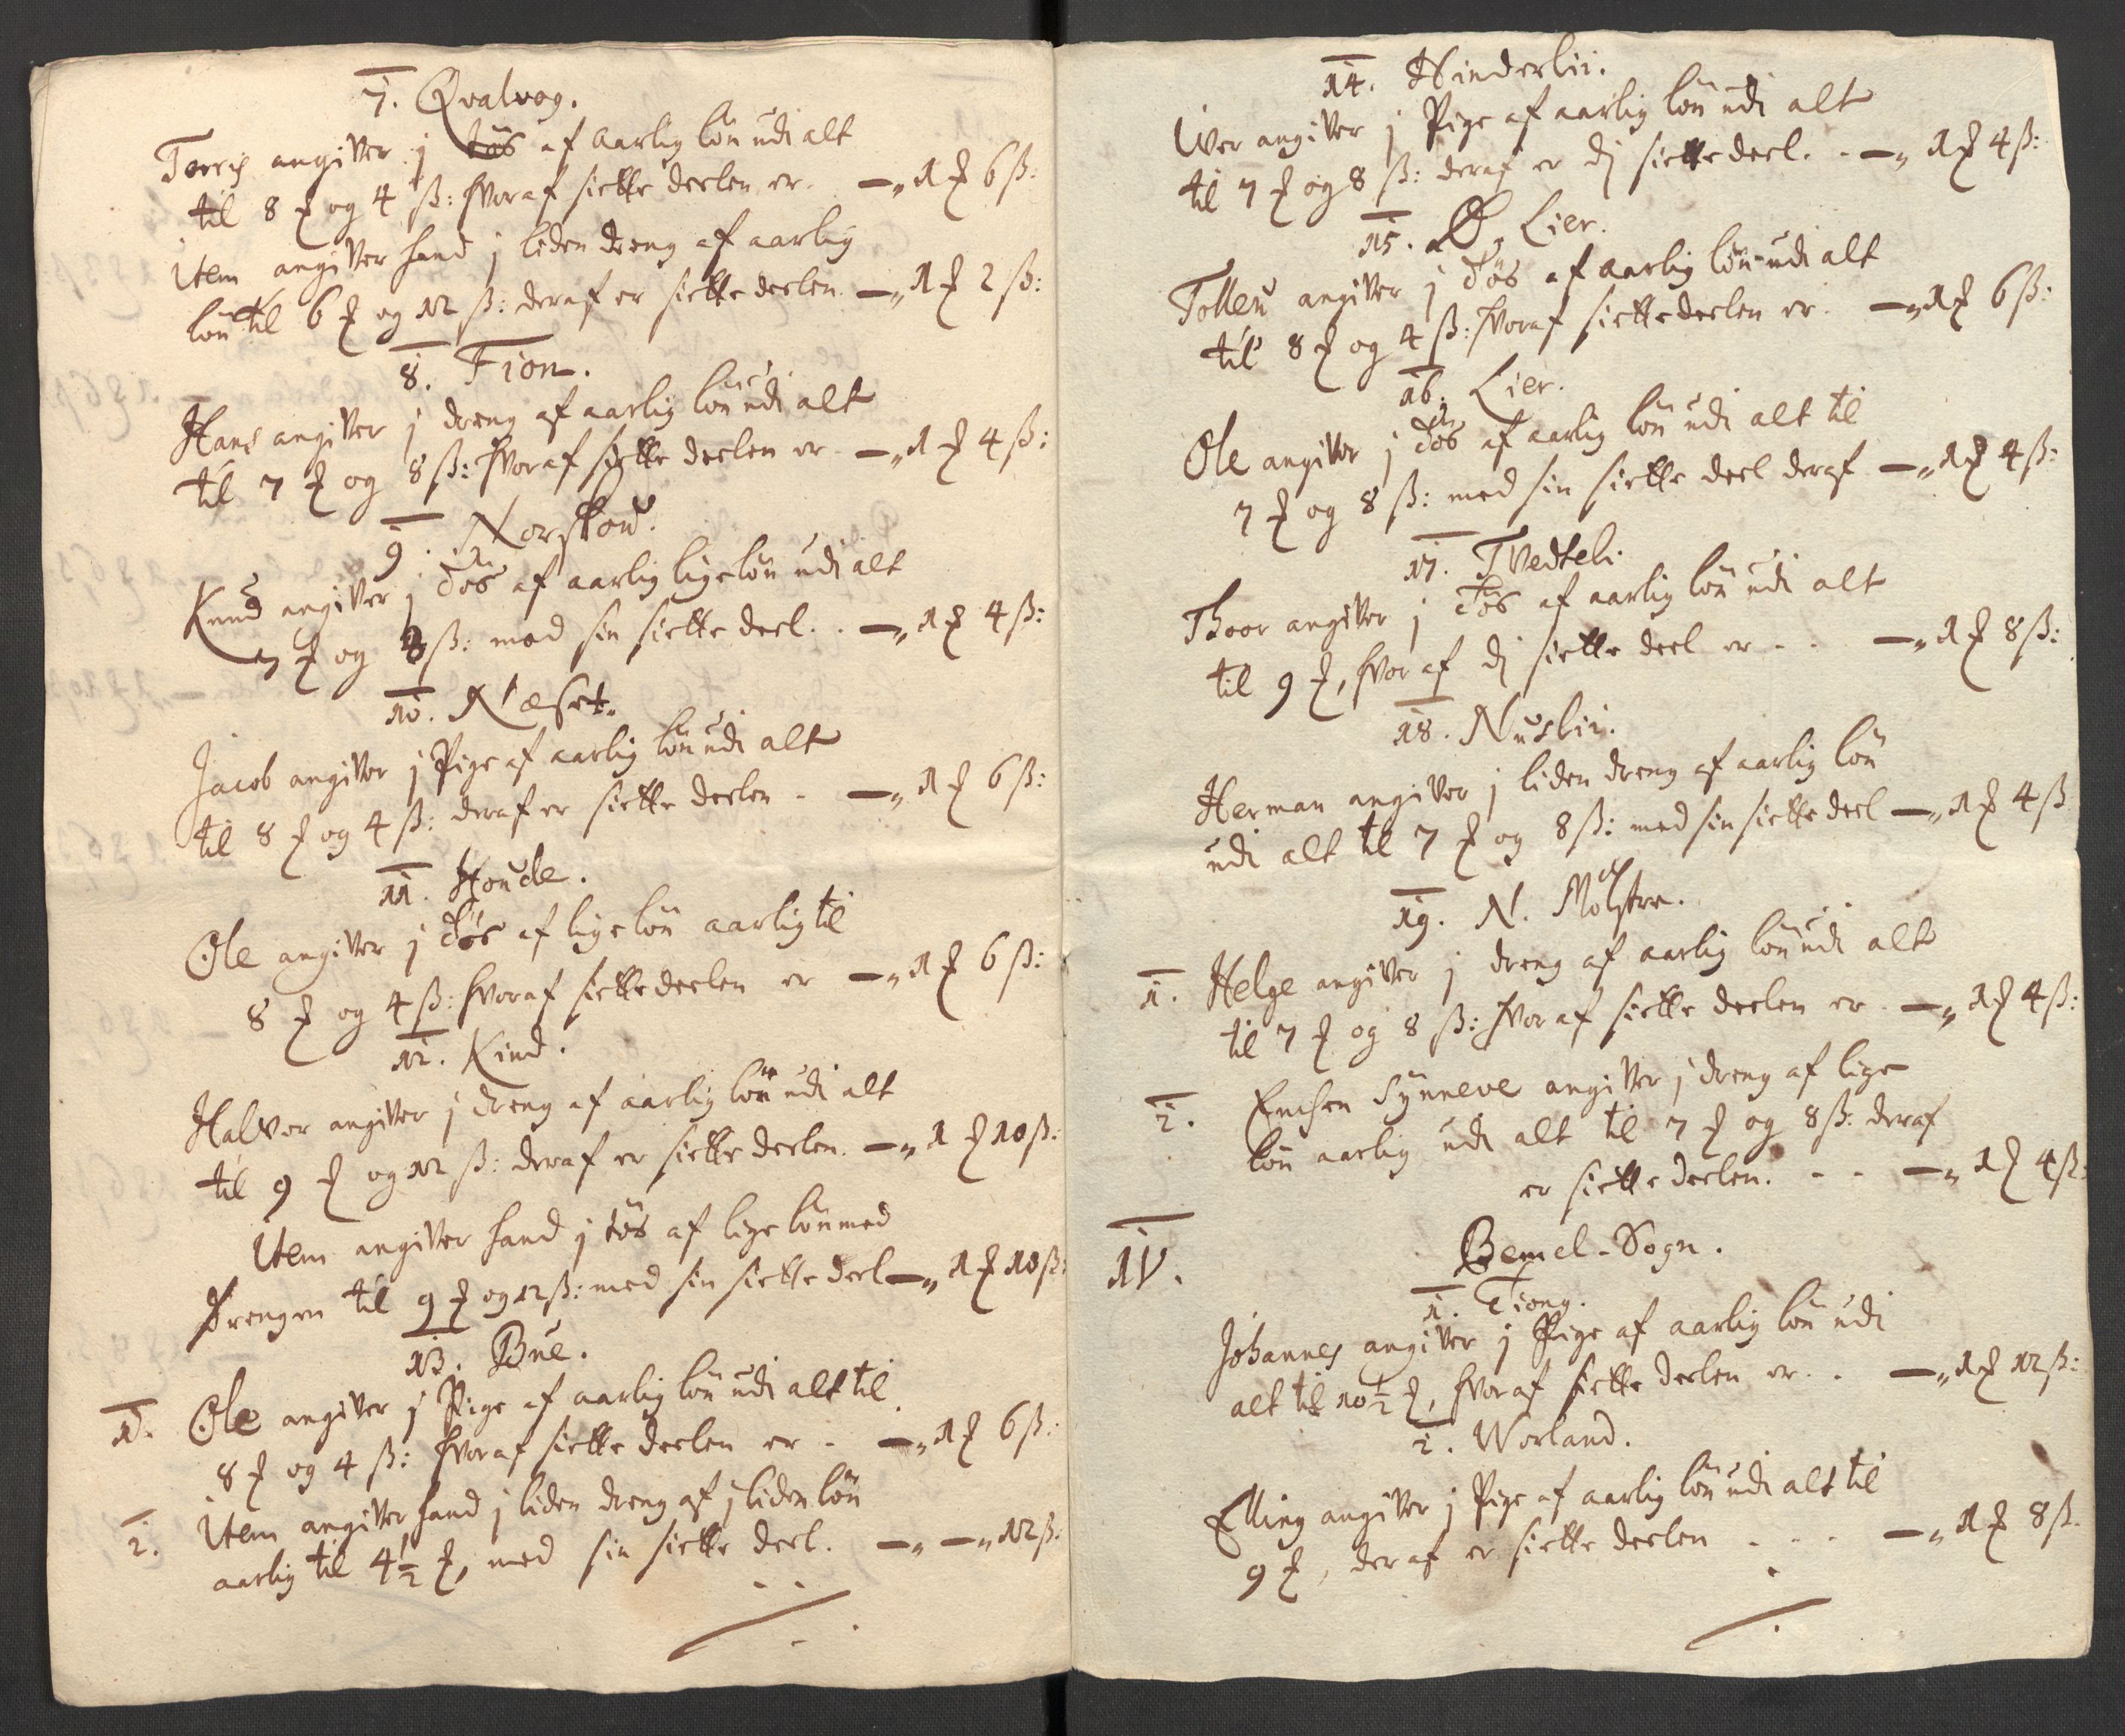 7. Qvalvog.
Torris angiver j tøs af aarlig løn udi alt
til 8 ₰ og 4 ß: hvoraf siette deelen er. —„ 1 ₰ 6 ß:
Item angiver hand j liden dreng af aarlig
løn til 6 ₰ og 12 ß: deraf er siette deelen —„ 1 ₰ 2 ß:
8. Fion.
Hans angiver j dreng af aarlig løn udi alt
til 7 ₰ og 8 ß: hvoraf siette deelen er —„ 1 ₰ 4 ß:
9. Norskou.
Knud angiver j Tøs af aarlig lige løn udi alt
7 ₰ og 8 ß: med sin siette deel. . —„ 1 ₰ 4 ß:
10. Næset.
Jacob angiver j Pige af aarlig løn udi alt
til 8 ₰ og 4 ß: deraf er siette deelen - —„ 1 ₰ 6 ß:
11. Houcle.
Ole angiver j Tøs af lige løn aarlig til
8 ₰ og 4 ß: hvoraf siette deelen er —„ 1 ₰ 6 ß:
12. Kind.
Halvor angiver j dreng af aarlig løn udi alt
til 9 ₰ og 12 ß: deraf er siette deelen. —„ 1 ₰ 10 ß:
Item angiver hand j tøs af lige løn med
drengen til 9 ₰ og 12 ß: med sin siette deel —„ 1 ₰ 10 ß:
13. Bue.
1. Ole angiver j Pige af aarlig løn udi alt til
8 ₰ og 4 ß: hvoraf siette deelen er - —„ 1 ₰ 6 ß:
2. Item angiver hand j liden dreng af j liden løn
aarlig til 4½ ₰, med sin siette deel. —„ —„ 12 ß:
14. Hinderlii.
Iver angiver j Pige af aarlig løn udi alt
til 7 ₰ og 8 ß: deraf er dj siette deel. - —„ 1 ₰ 4 ß:
15. Ø. Lier.
Tollev angiver j Tøs af aarlig løn udi alt
til 8 ₰ og 4 ß: hvoraf siette deelen er. —„ 1 ₰ 6 ß:
16. Lier.
Ole angiver j Tøs af aarlig løn udi alt til
7 ₰ og 8 ß: med sin siette deel deraf —„ 1 ₰ 4 ß:
17. Tvedteli
Thoor angiver j Tøs af aarlig løn udi alt
til 9 ₰, hvoraf dj siette deel er - - —„ 1 ₰ 8 ß:
18. Nuslii.
Herman angiver j liden dreng af aarlig løn
udi alt til 7 ₰ og 8 ß: med sin siette deel —„ 1 ₰ 4 ß
19. N. Mølstre.
1. Helge angiver j dreng af aarlig løn udi alt
til 7 ₰ og 8 ß: hvoraf siette deelen er - —„ 1 ₰ 4 ß:
2. Enchen Synneve angiver j dreng af lige
løn aarlig udi alt til 7 ₰ og 8 ß: deraf
er siette deelen. - - —„ 1 ₰ 4 ß:
IV. Bemel-Sogn.
1. Tiong.
Johannes angiver j Pige af aarlig løn udi
alt til 10½ ₰, hvoraf siette deelen er. . —„ 1 ₰ 12 ß:
2. Worland.
Elling angiver j Pige af aarlig løn udi alt til
9 ₰, deraf er siette deelen - - - —„ 1 ₰ 8 ß.